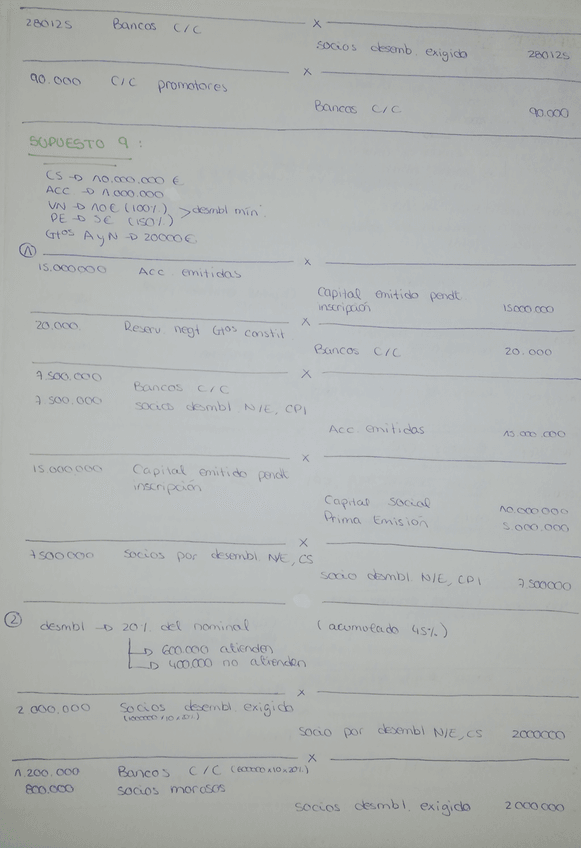 280125 Bancos C/C x
socios desemb. exigido 280125
x
90.000 C/C promotores
Bancos C/C 90.000
SUPUESTO 9 :
CS → 10.000.000 €
ACC → 1000.000
VN → 10€ (100%) > desmbl min.
PE → 5€ (150%)
Gtos AyN → 20000€
① x
15.000000 Acc emitidas
Capital emitido pendt
inscripción 15000.000
x
20.000 Reserv. negt Gtos constit
Bancos C/C 20.000
x
7.500.000 Bancos C/C
7.500.000 socios desmbl N/E, CPI
Acc emitidas 15 000 000
x
15.000.000 Capital emitido pendt
inscripción
Capital social 10.000000
Prima Emisión 5.000.000
x
7500000 Socios por desembl N/E, CS
Socio desmbl N/E, CPI 7.500000
② desmbl → 20% del nominal (acumulado 45%)
→ 600.000 atienden
→ 400.000 no atienden
x
2 000,000 Socios desembl. exigido
(1000000x10x20%)
Socio por desembl N/E, CS 2000000
x
1.200.000 Bancos C/C (600000x10x20%)
800.000 socios morosos
socios desmbl. exigido 2000000